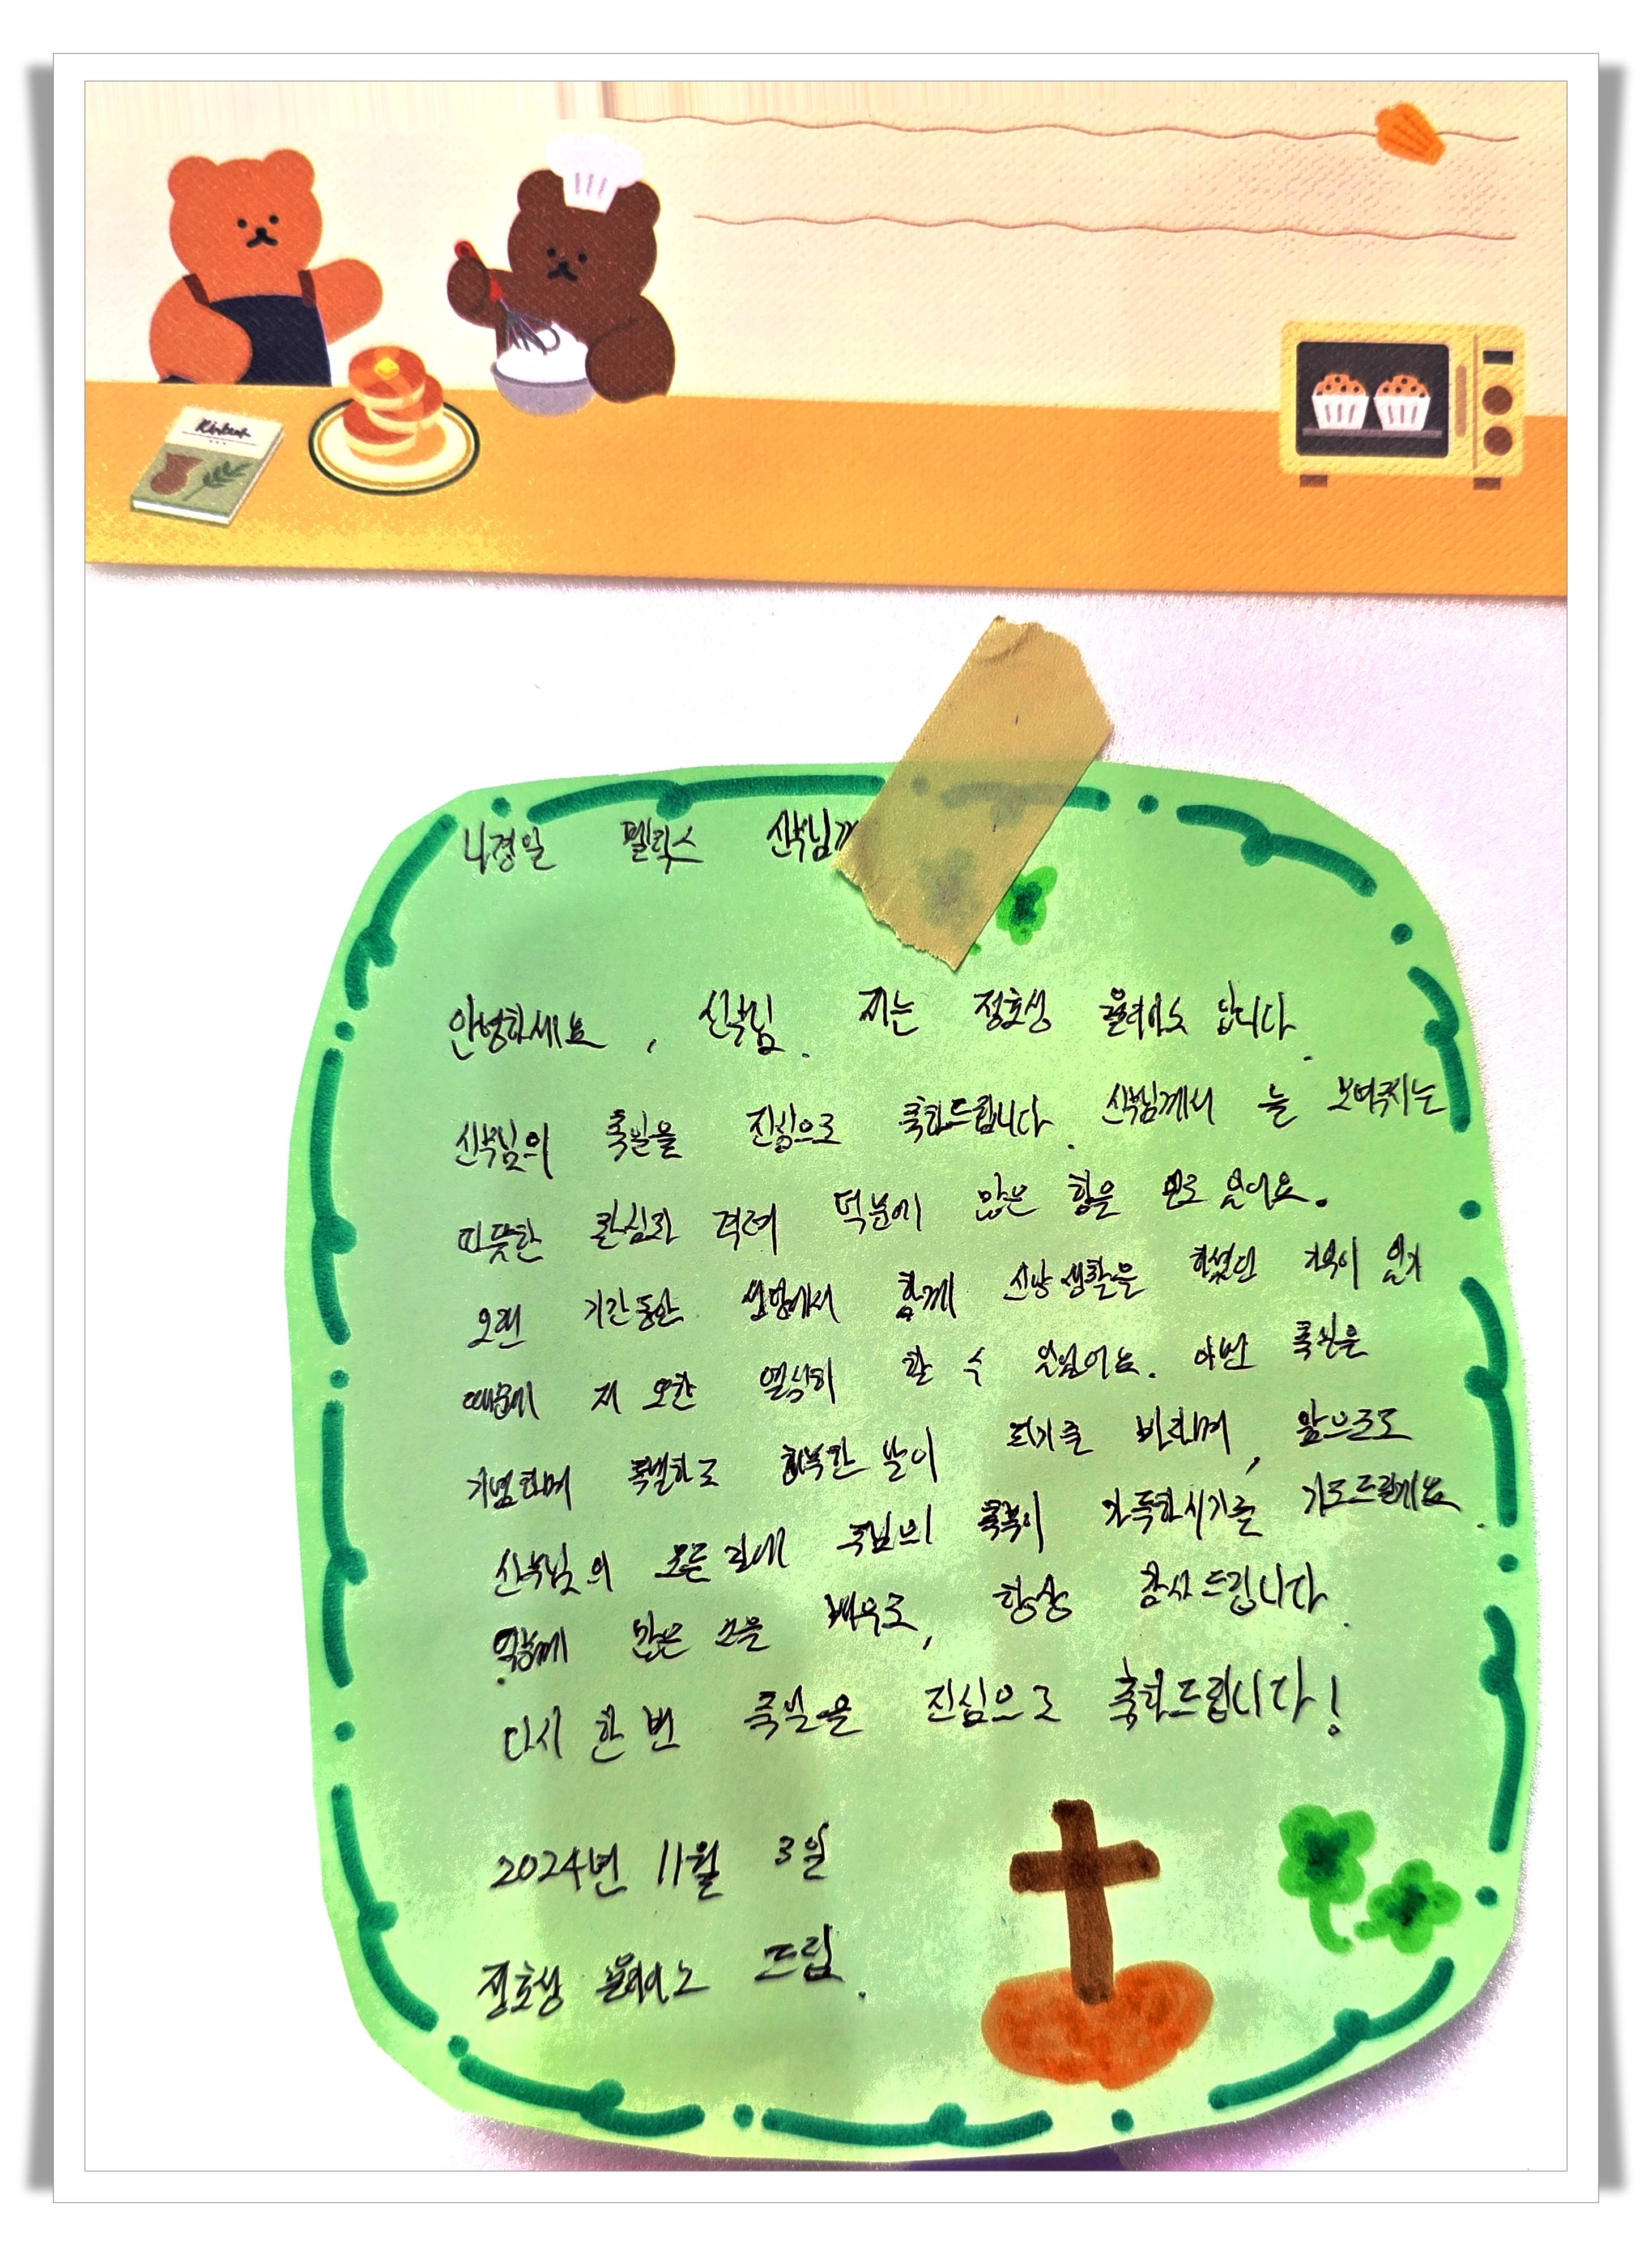 나경일 펠릭스 신부님께
안녕하세요, 신부님. 저는 정호성 율리아노 입니다.
신부님의 축일을 진심으로 축하드립니다. 신부님께서 늘 보여주시는
따뜻한 관심과 격려 덕분에 많은 힘을 얻고 있어요.
오랜 기간동안 성당에서 함께 신앙생활을 하셨던 기억이 있기
때문에 저 또한 열심히 할 수 있었어요. 이번 축일을
기념하며 특별하고 행복한 날이 되기를 바라며, 앞으로도
신부님의 모든 길에 주님의 축복이 가득하시기를 기도드릴게요.
많은 것을 배우고, 항상 감사드립니다.
다시 한 번 축일을 진심으로 축하드립니다!
2024년 11월 3일
정호성 율리아노 드림.